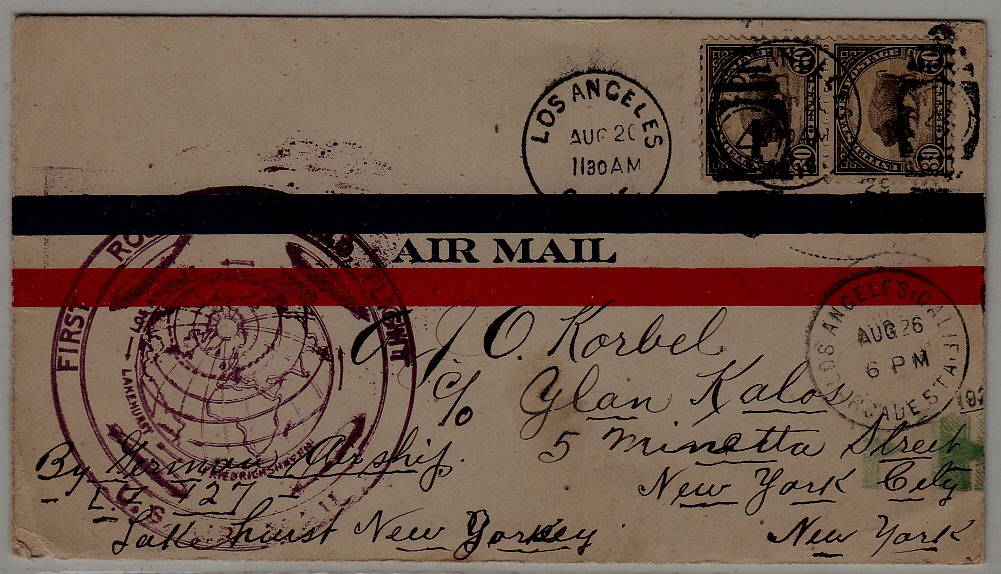 LOS ANGELES
AUG 26
1130 AM
30 30
AIR MAIL
FIRST ROU LD FLIGHT
LOS A
LAKEHURST
FRIEDRICHSHAFEN
U.S.
J. O. Korbel
c/o Glan Kalos
5 Minetta Street
New York City
New York
By German Airship
L.Z. 127
Lakehurst New Yersey
LOS ANGELES, CALIF.
AUG 26
6 PM
ARCADE STA.